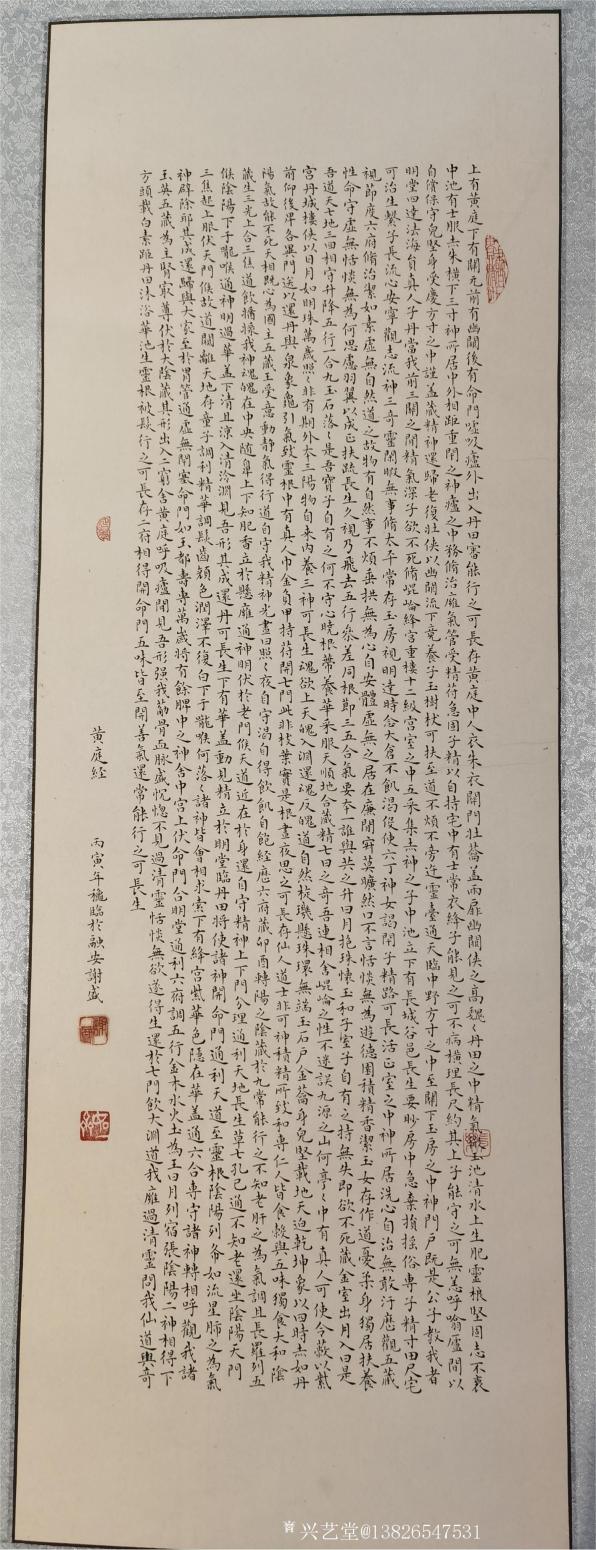 上有黃庭下有關元前有幽闕後有命門噓吸廬外出入丹田審能行之可長存黃庭中人衣朱衣關門壯籥蓋兩扉幽闕俠之高巍々丹田之中精氣微玉池清水上生肥靈根堅固志不衰
中池有士服赤朱橫下三寸神所居中外相距重閉之神廬之中務脩治廱氣管受精符急固子精以自持宅中有士常衣絳子能見之可不病橫理長尺約其上子能守之可無恙呼噏廬間以
自償保守完堅身受慶方寸之中謹蓋藏精神還歸老復壯俠以幽闕流下竟養子玉樹杖可扶至道不煩不旁迕靈臺通天臨中野方寸之中至關下玉房之中神門戶既是公子教我者
明堂四達法海負真人子丹當我前三關之間精氣深子欲不死脩崐崘絳宮重樓十二級宮室之中五采集赤神之子中池立下有長城谷邑長生要眇房中急棄捐搖俗專子精寸田尺宅
可治生繫子長流心安寧觀志流神三奇靈閑暇無事脩太平常存玉房視明達時念大倉不飢渴役使六丁神女謁閉子精路可長活正室之中神所居洗心自治無敢汙歷觀五藏
視節度六府脩治潔如素虛無自然道之故物有自然事不煩垂拱無為心自安體虛無之居在廉間寂莫曠然口不言恬惔無為遊德園積精香潔玉女存作道憂柔身獨居扶養
性命守虛無恬惔無為何思慮羽翼以成正扶疏長生久視乃飛去五行參差同根節三五合氣要本一誰與共之升日月抱珠懷玉和子室子自有之持無失即欲不死藏金室出月入日是
吾道天七地三回相守升降五行一合九玉石落々是吾寶子自有之何不守心曉根蒂養華采服天順地合藏精七日之奇吾連相舍崐崘之性不迷誤九源之山何亭々中有真人可使令蔽以紫
宮丹城樓俠以日月如明珠萬歲照々非有期外本三陽物自来內養三神可長生魂欲上天魄入淵還魂反魄道自然旋璣懸珠環無端玉石戶金籥身完堅載地天迫乾坤象以四時赤如丹
前仰後卑各異門送以還丹與泉象龜引氣致靈根中有真人巾金負甲持符開七門此非枝葉實是根晝夜思之可長存仙人道士非可神積精所致和專仁人皆食榖與五味獨食大和陰
陽氣故能不死天相既心為國主五藏王受意動靜氣得行道自守我精神光晝日照々夜自守渴自得飲飢自飽經歷六府藏卯酉轉陽之陰藏於九常能行之不知老肝之為氣調且長羅列五
藏生三光上合三焦道飲醬漿我神魂魄在中央隨鼻上下知肥香立於懸廱通神明伏於老門候天道近在於身還自守精神上下門分理通利天地長生草七孔已通不知老還坐陰陽天門
候陰陽下于嚨喉通神明過華蓋下清且涼入清泠淵見吾形其成還丹可長生下有華蓋動見精立於明堂臨丹田將使諸神開命門通利天道至靈根陰陽列布如流星肺之為氣
三焦起上服伏天門候故道闚離天地存童子調利精華調髮齒顏色潤澤不復白下于嚨喉何落々諸神皆會相求索下有絳宮紫華色隱在華蓋通六合專守諸神轉相呼觀我諸
神辟除邪其成還歸與大家至於胃管通虛無閉塞命門如玉都壽專萬歲將有餘脾中之神舍中宮上伏命門合明堂通利六府調五行金木水火土為王日月列宿張陰陽二神相得下
玉英五藏為主腎最尊伏於大陰藏其形出入二竅舍黃庭呼吸廬間見吾形强我筋骨血脉盛恍惚不見過清靈恬惔無欲遂得生還於七門飲大淵道我廱過清靈問我仙道與奇
方頭載白素距丹田沐浴華池生靈根被髮行之可長存二府相得開命門五味皆至開善氣還常能行之可長生
黃庭经 丙寅年穐臨於融安謝盛
兴艺堂@13826547531